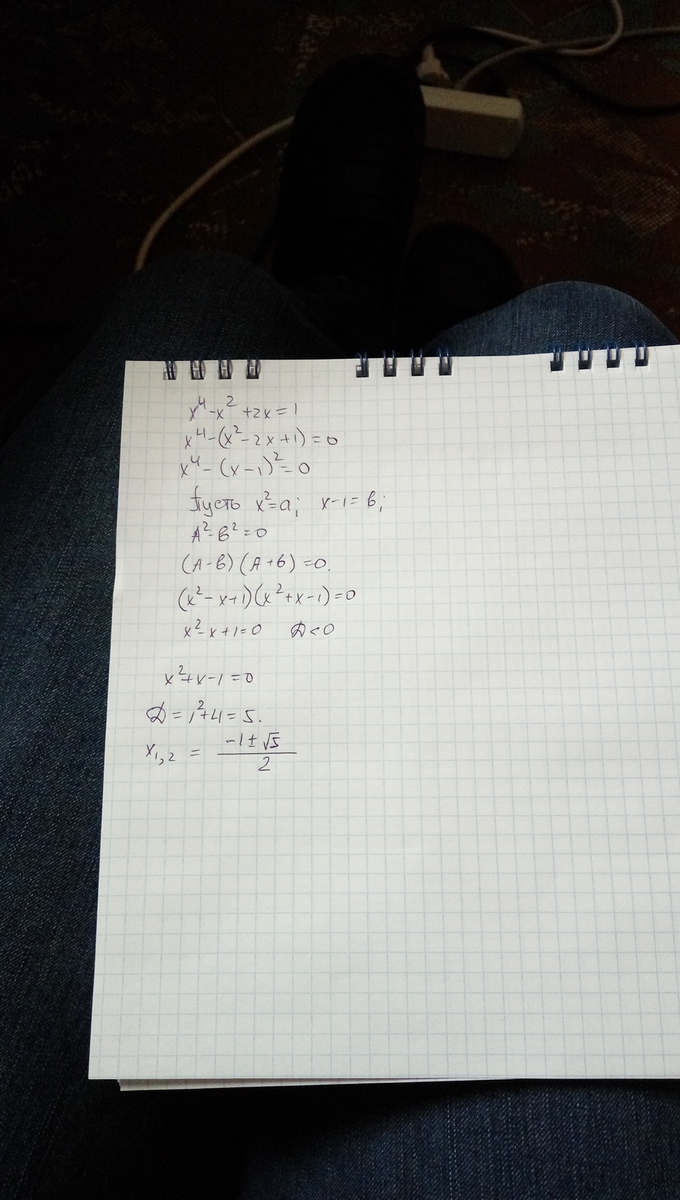 x⁴-x²+2x=1
x⁴-(x²-2x+1)=0
x⁴-(x-1)²=0
Пусть x²=a; x-1=в;
A²-в²=0
(A-в)(A+в)=0.
(x²-x+1)(x²+x-1)=0
x²-x+1=0 D<0
x²+x-1=0
D=1²+4=5.
x₁,₂ = (-1±√5)/2